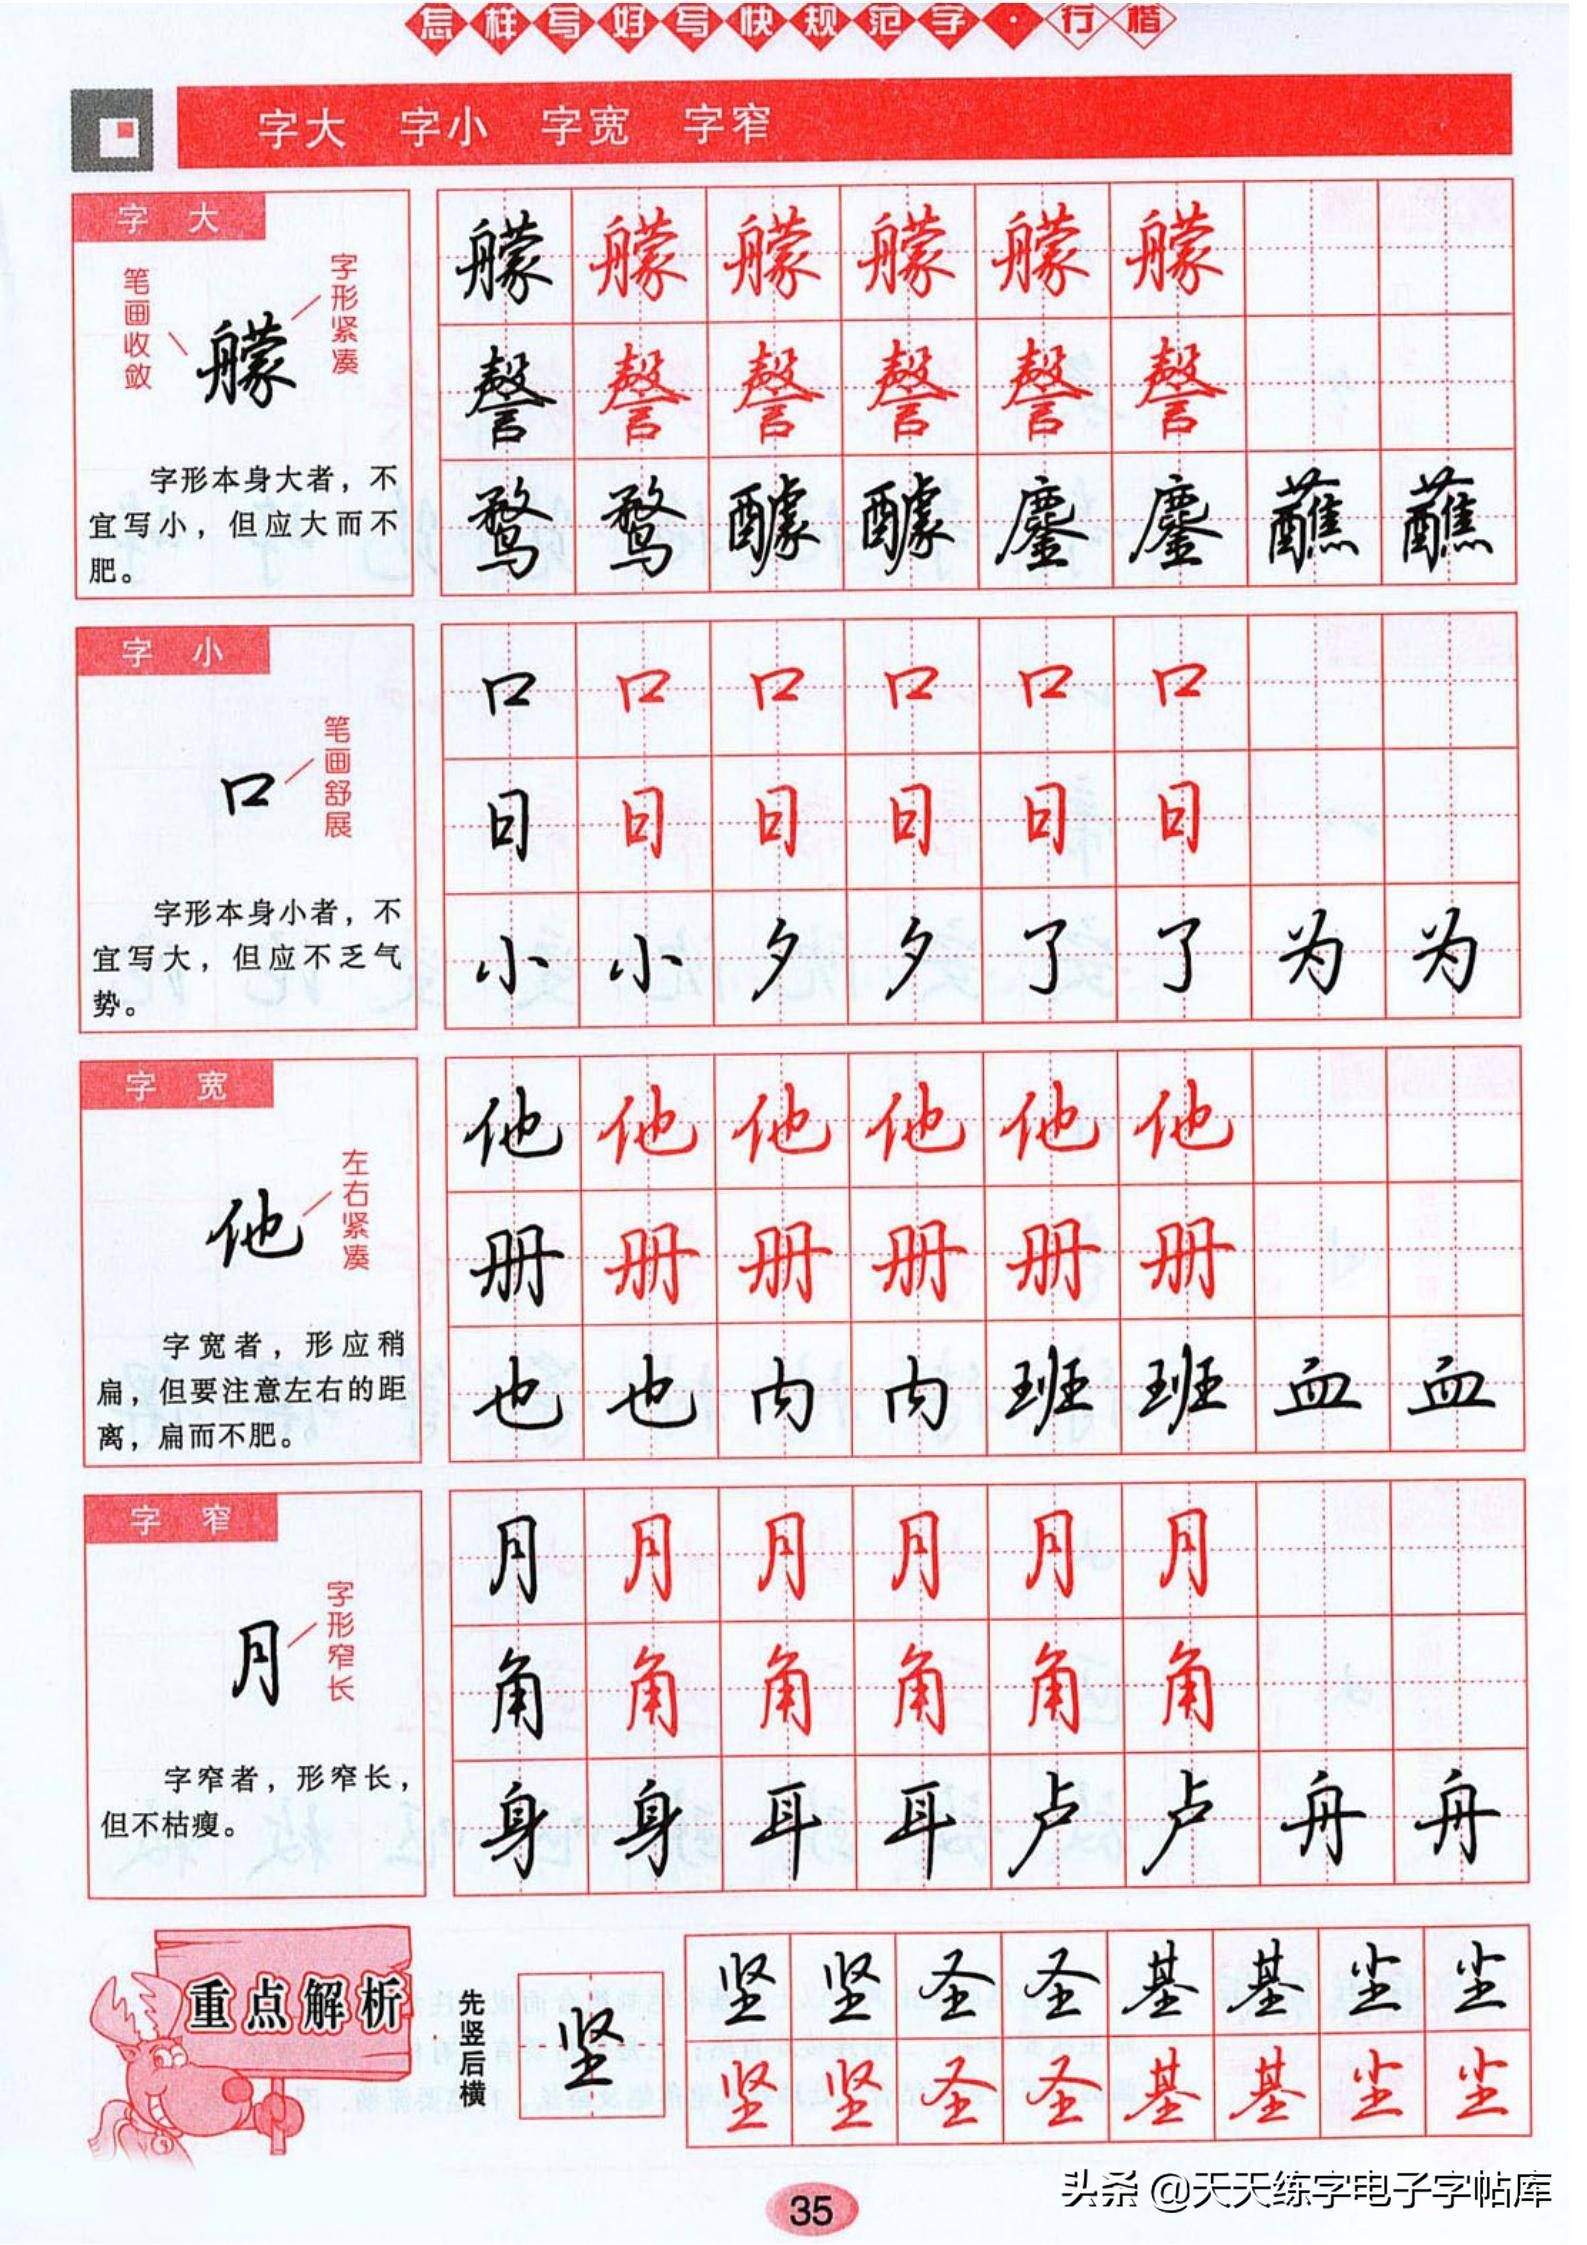 怎样写好写快规范字·行楷
字大 字小 字宽 字窄
字 大
笔画收敛
艨
字形紧凑
字形本身大者，不
宜写小，但应大而不
肥。
艨 艨 艨 艨 艨 艨
謦 謦 謦 謦 謦 謦
鹜 鹜 醵 醵 鏖 鏖 蘸 蘸
字 小
口
笔画舒展
字形本身小者，不
宜写大，但应不乏气
势。
口 口 口 口 口 口
日 日 日 日 日 日
小 小 夕 夕 了 了 为 为
字 宽
他
左右紧凑
字宽者，形应稍
扁，但要注意左右的距
离，扁而不肥。
他 他 他 他 他 他
册 册 册 册 册 册
也 也 内 内 班 班 血 血
字 窄
月
字形窄长
字窄者，形窄长，
但不枯瘦。
月 月 月 月 月 月
角 角 角 角 角 角
身 身 耳 耳 卢 卢 舟 舟
重点解析
先竖后横
坚
坚 坚 圣 圣 基 基 尘 尘
坚 坚 圣 圣 基 基 尘 尘
35
头条 @天天练字电子字帖库